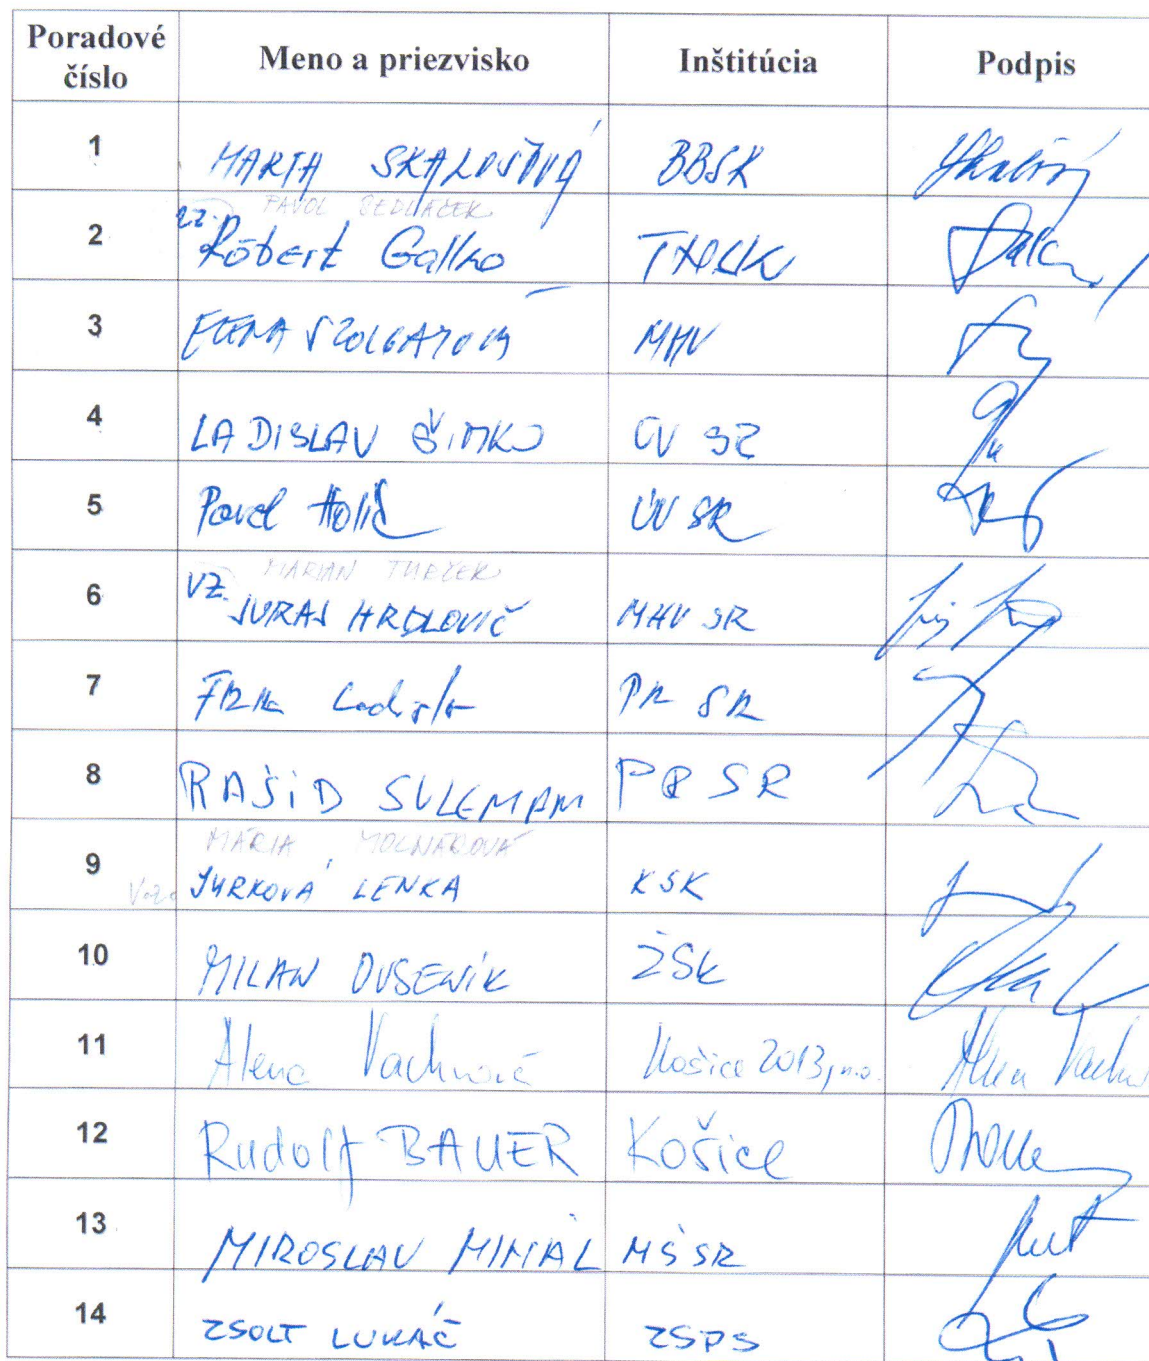 Poradové číslo Meno a priezvisko Inštitúcia Podpis
1 MARTA SKALOŠOVÁ BBSK
PAVOL SEDLÁČEK
2 vz. Róbert Gallko
3 ELENA SZOLGAYOVÁ MHV
4 LADISLAV ŠIMKO ÚV SR
5 Pavel Holík ÚV SR
MARIAN TURČEK
6 VZ. JURAJ HRDLOVIČ MHV SR
7 Ladislav PR SR
8 RAŠiD SULEMAN PR SR
MÁRIA MOLNÁROVÁ
9 JURKOVÁ LENKA KSK
10 MILAN ŽSK
11 Alena Vachnová Košice 2013, n.o. Alena
12 Rudolf BAUER Košice
13 MIROSLAV MIHÁL MŠ SR
14 ZSOLT LUKÁČ ZSPS